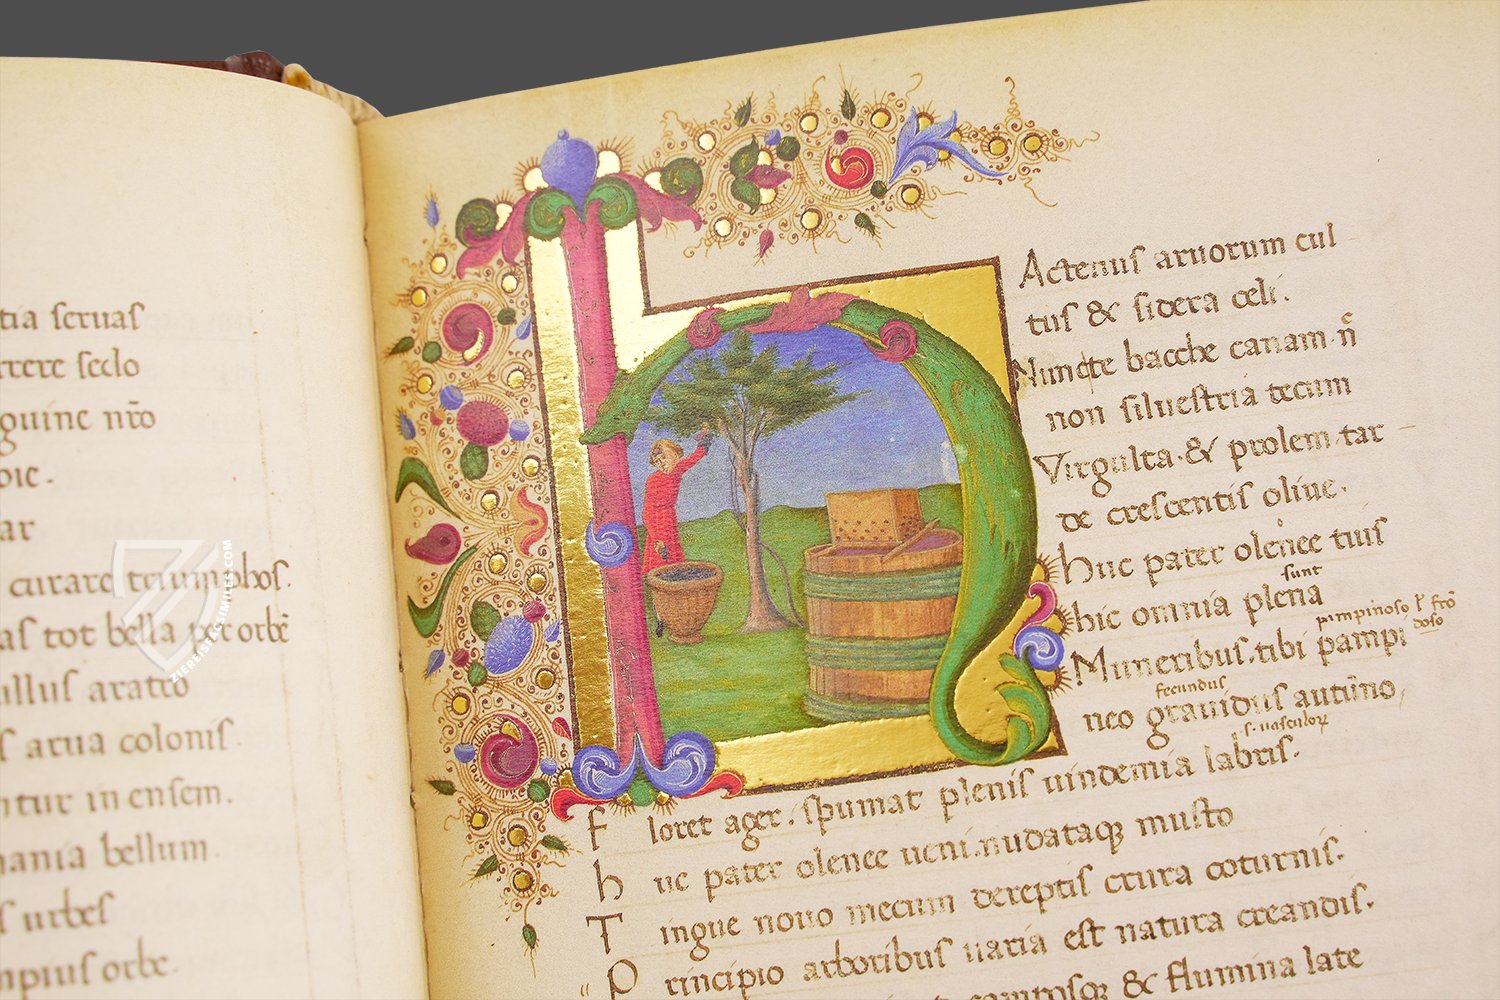 tia seruas
rtere sedo
guine nr̄o
bic.
ar
curare triumphos.
as tot bella per orbē
ullus aratro
s arua colonis.
ntur in ensem.
mania bellum.
s urbes
mpius orbe.
ZIEREIS FACSIMILES.COM
hActenus aruorum cul
tus & sidera celi.
Nunc te bacche canam n̄
non siluestria tecum
Virgulta & prolem tar
de crescentis oliue.
huc pater olenee tuis
sunt
hic omnia plena
pimpinoso l' frō
doso
Muneribus. tibi pampi
fecundus
neo grauidus autūno,
s. uasculorꝝ
floret ager. spumat plenis uindemia labris.
huc pater olenee ueni. nudataqꝫ musto
Tingue nouo mecum dereptis crura coturnis.
Principio arboribus uaria est natura creandis.
& flumina late